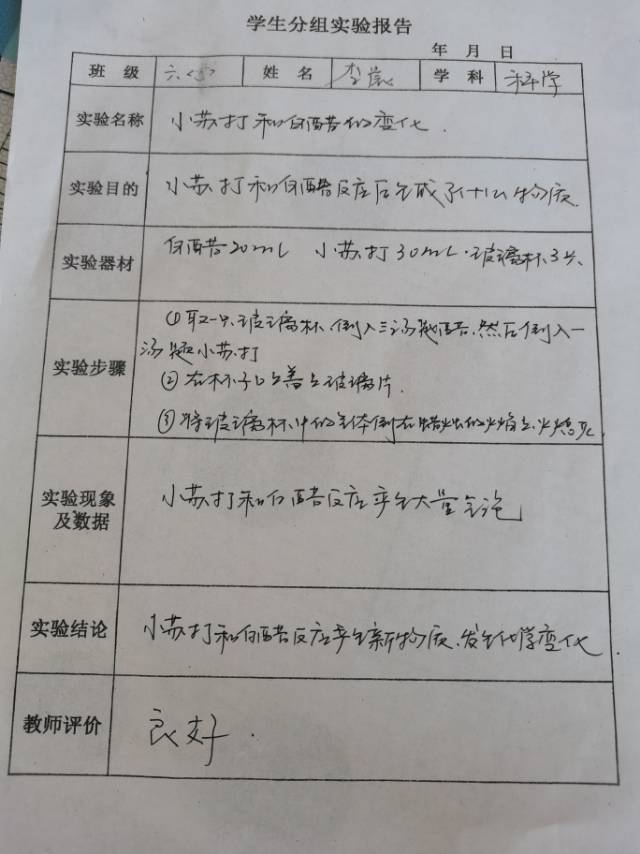 学生分组实验报告
年 月 日
班 级 六.(5) 姓 名 李 学 科 科学
实验名称 小苏打和白醋的变化.
实验目的 小苏打和白醋反应后生成了什么物质.
实验器材 白醋20mL 小苏打30mL.玻璃杯3只.
①取一只玻璃杯.倒入三汤匙醋.然后倒入一
实验步骤 汤匙小苏打
②在杯子口上盖上玻璃片.
③将玻璃杯中的气体倒在蜡烛的火焰上.火熄灭
实验现象 小苏打和白醋反应产生大量气泡
及数据
实验结论 小苏打和白醋反应产生新物质.发生化学变化
教师评价 良好.